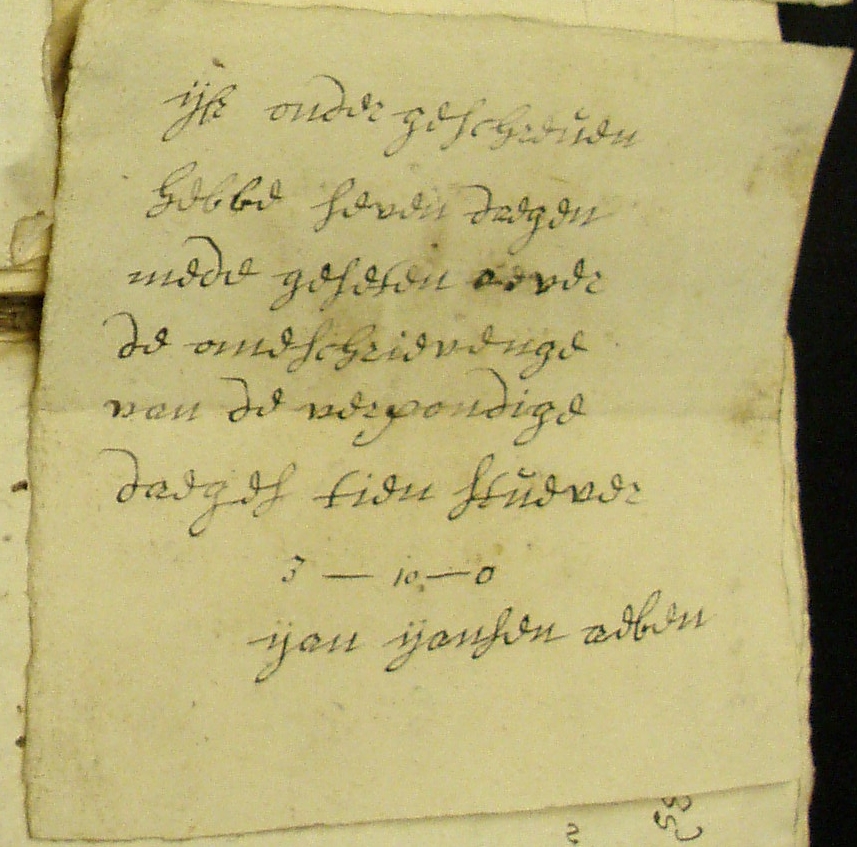 ijk onder geschreuen
hebbe seven daegen
mede geseten aever
de omeschrievenge
van de verpondige
daeges tien stuever
3 — 10 — 0
yan yansen aeben